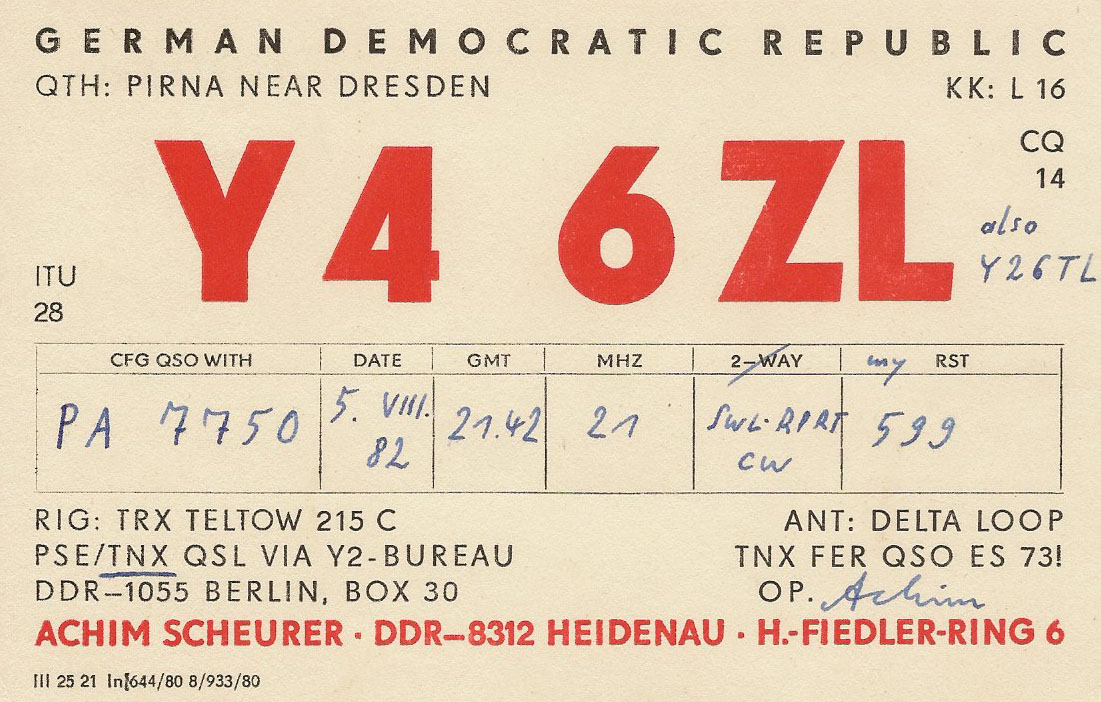 GERMAN DEMOCRATIC REPUBLIC
QTH: PIRNA NEAR DRESDEN KK: L 16
CQ
14
Y46ZL
also
Y26TL
ITU
28
CFG QSO WITH DATE GMT MHZ 2-WAY my RST
PA 7750 5. VIII. 82 21.42 21 SWL-RPRT CW 599
RIG: TRX TELTOW 215 C ANT: DELTA LOOP
PSE/TNX QSL VIA Y2-BUREAU TNX FER QSO ES 73!
DDR-1055 BERLIN, BOX 30 OP. Achim
ACHIM SCHEURER · DDR-8312 HEIDENAU · H.-FIEDLER-RING 6
III 25 21 644/80 8/933/80